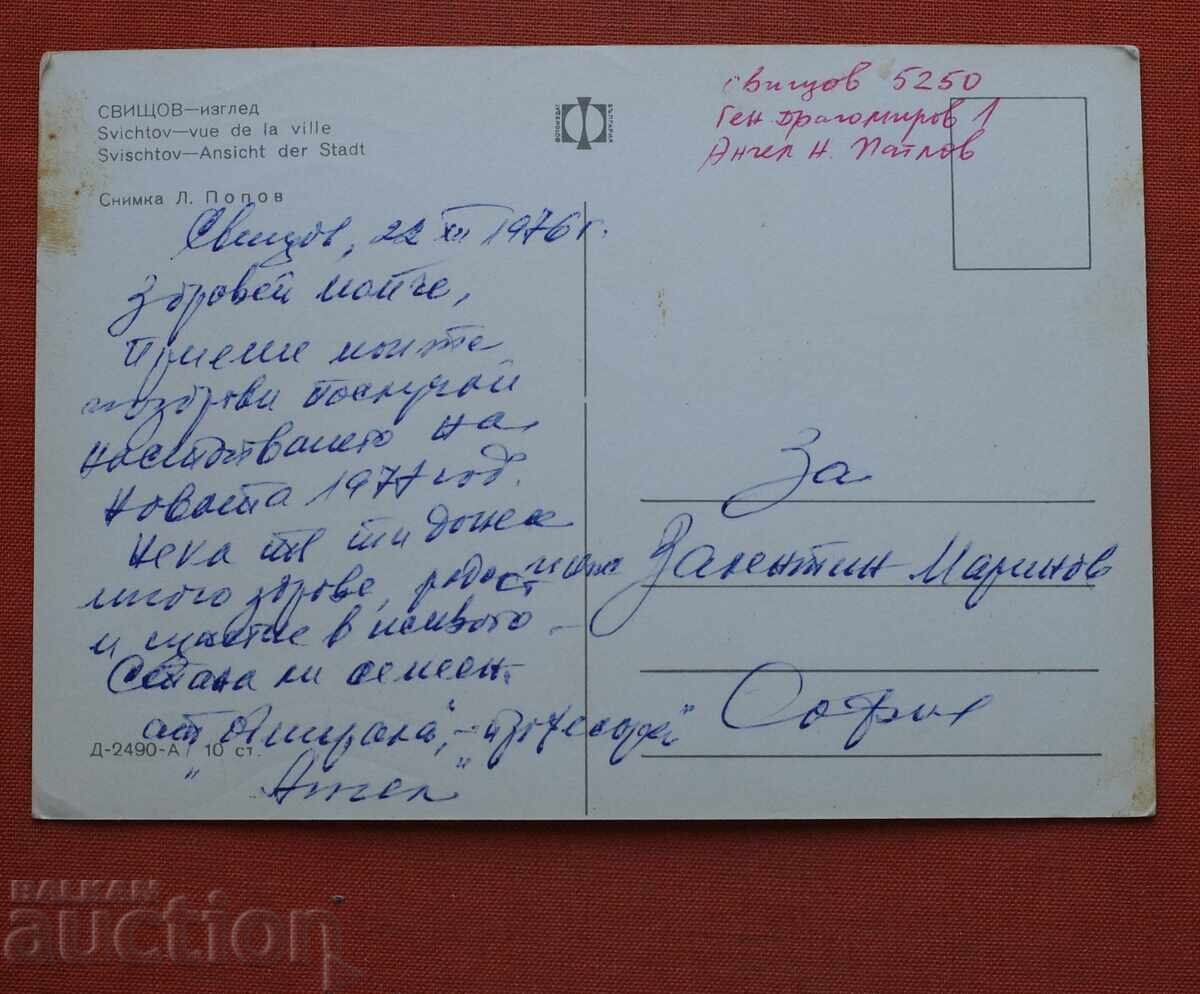 СВИЩОВ—изглед
Svichtov—vue de la ville
Svischtov—Ansicht der Stadt
Снимка Л. Попов
ФОТОИЗДАТ БЪЛГАРИЯ
Свищов 5250
Ген Драгомиров 1
Ангел Н.
Свищов, 22 XII 1976 г.
Здравей момче,
Приеми моите
поздрави по случай
настъпването на
Новата 1977 год.
Нека тя ти донесе
много здраве, радост
и щастие в живота
Стана ли семеен
от
"Ангел"
Д-2490-А 10 ст.
За
Валентин Маринов
София
BALKAN
auction